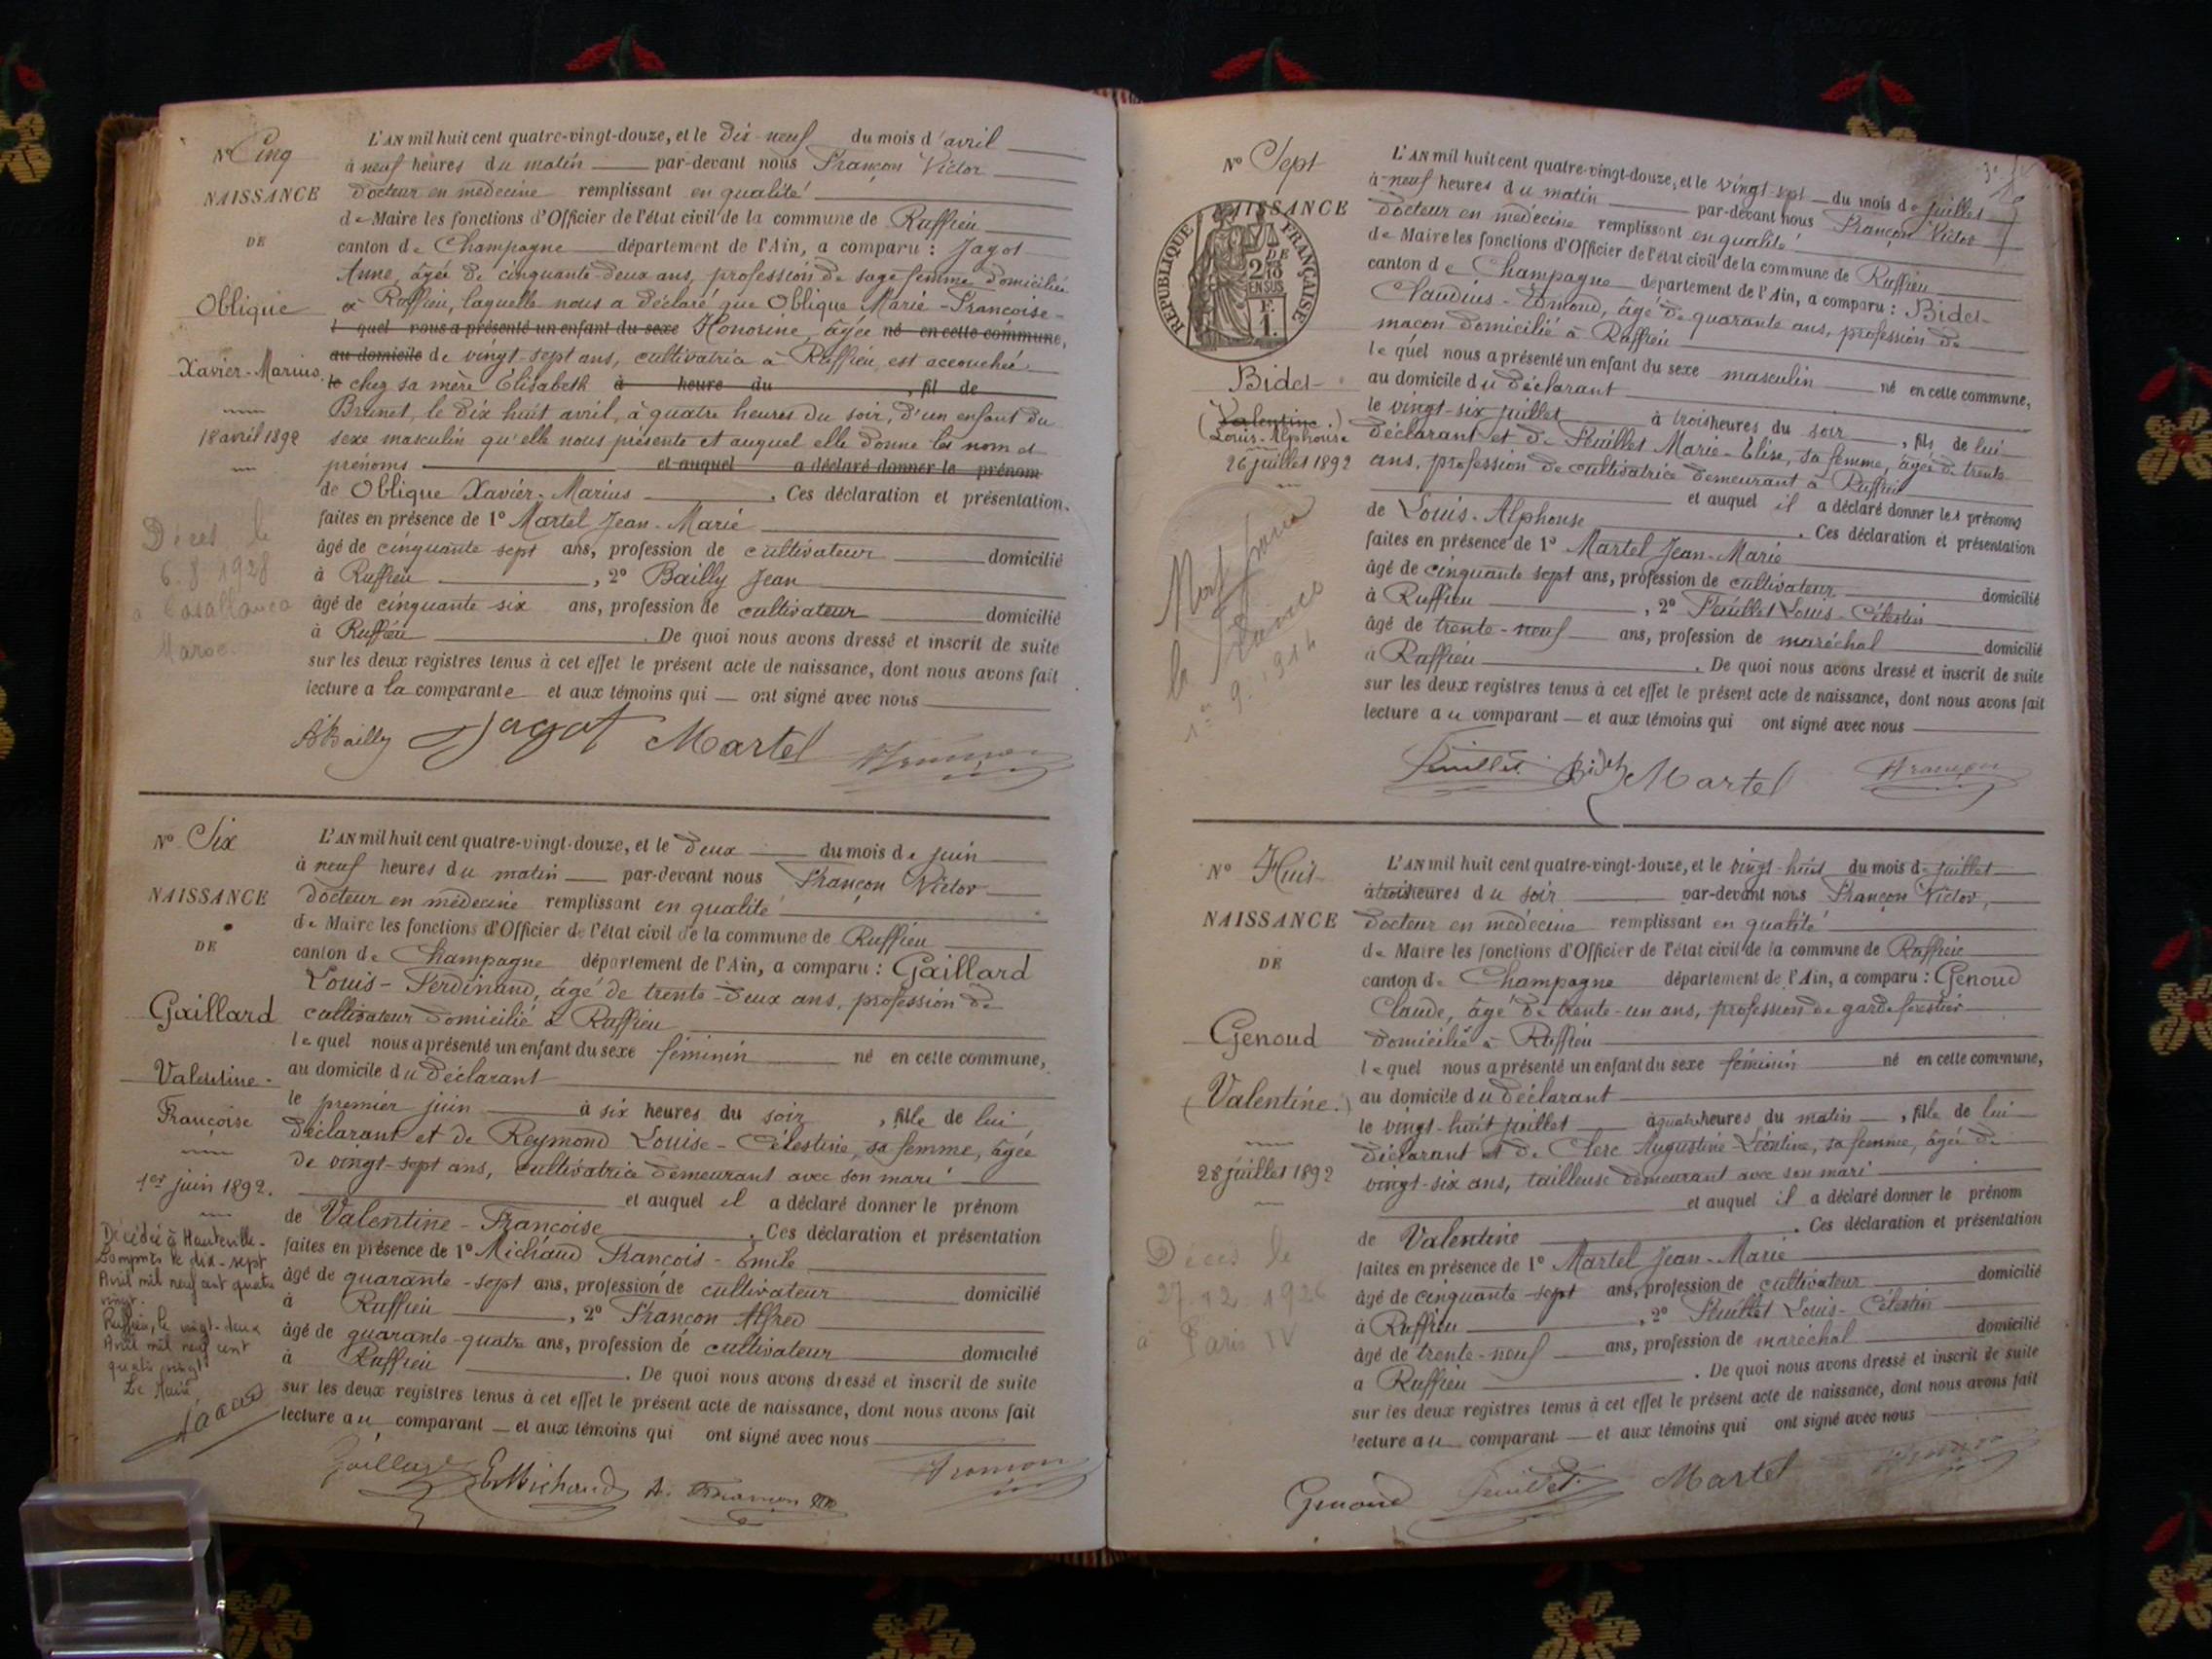 N° Cinq
NAISSANCE
DE
Oblique
Xavier-Marius
18 avril 1892
Décès le
6.8.1928
à Casablanca
Maroc
L'AN mil huit cent quatre-vingt-douze, et le dix-neuf du mois d'avril
à neuf heures du matin par-devant nous Françon Victor
docteur en médecine remplissant en qualité
de Maire les fonctions d'Officier de l'état civil de la commune de Ruffieu
canton de Champagne département de l'Ain, a comparu : Jagot
Anne, âgée de cinquante-deux ans, profession de sage femme domiciliée
à Ruffieu, laquelle nous a déclaré que Oblique Marie-Françoise-
l quel nous a présenté un enfant du sexe Honorine, âgée né en cette commune,
au domicile de vingt-sept ans, cultivatrice à Ruffieu, est accouchée
le chez sa mère Elisabeth à heure du , fil de
Brunet, le dix huit avril, à quatre heures du soir, d'un enfant du
sexe masculin qu'elle nous présente et auquel elle donne les nom et
prénoms et auquel a déclaré donner le prénom
de Oblique Xavier-Marius . Ces déclaration et présentation
faites en présence de 1° Martel Jean-Marie
âgé de cinquante sept ans, profession de cultivateur domicilié
à Ruffieu , 2° Bailly Jean
âgé de cinquante six ans, profession de cultivateur domicilié
à Ruffieu . De quoi nous avons dressé et inscrit de suite
sur les deux registres tenus à cet effet le présent acte de naissance, dont nous avons fait
lecture a la comparante et aux témoins qui ont signé avec nous
Bailly Jagot Martel Françon
N° Six
NAISSANCE
DE
Gaillard
Valentine-
Françoise
1er juin 1892.
Décédée à Hauteville-
Lompnes le dix-sept
Avril mil neuf cent quatre
vingt.
Ruffieu, le vingt-deux
Avril mil neuf cent
quatre vingt
Le Maire,
L'AN mil huit cent quatre-vingt-douze, et le deux du mois de juin
à neuf heures du matin par-devant nous Françon Victor
docteur en médecine remplissant en qualité
de Maire les fonctions d'Officier de l'état civil de la commune de Ruffieu
canton de Champagne département de l'Ain, a comparu : Gaillard
Louis-Ferdinand, âgé de trente-deux ans, profession de
cultivateur domicilié à Ruffieu
lequel nous a présenté un enfant du sexe féminin né en cette commune,
au domicile du déclarant
le premier juin à six heures du soir , fille de lui
déclarant et de Reymond Louise-Célestine, sa femme, âgée
de vingt-sept ans, cultivatrice demeurant avec son mari
et auquel il a déclaré donner le prénom
de Valentine-Françoise . Ces déclaration et présentation
faites en présence de 1° Michaud François-Emile
âgé de quarante-sept ans, profession de cultivateur domicilié
à Ruffieu , 2° Françon Alfred
âgé de quarante-quatre ans, profession de cultivateur domicilié
à Ruffieu . De quoi nous avons dressé et inscrit de suite
sur les deux registres tenus à cet effet le présent acte de naissance, dont nous avons fait
lecture au comparant et aux témoins qui ont signé avec nous
Gaillard E Michaud A. Françon Françon
N° Sept
NAISSANCE
RÉPUBLIQUE FRANÇAISE
2/10
EN SUS
F.
1.
DE
Bidet
(Valentine.)
Louis-Alphonse
26 juillet 1892
Mort pour
la France
1er 9. 1914
L'AN mil huit cent quatre-vingt-douze, et le vingt-sept du mois de juillet
à neuf heures du matin par-devant nous Françon Victor
docteur en médecine remplissant en qualité
de Maire les fonctions d'Officier de l'état civil de la commune de Ruffieu
canton de Champagne département de l'Ain, a comparu : Bidet
Claudius-Edmond, âgé de quarante ans, profession de
maçon domicilié à Ruffieu
lequel nous a présenté un enfant du sexe masculin né en cette commune,
au domicile du déclarant
le vingt-six juillet à trois heures du soir , fils de lui
déclarant et de Feuillet Marie-Elise, sa femme, âgée de trente
ans, profession de cultivatrice demeurant à Ruffieu
et auquel il a déclaré donner les prénoms
de Louis-Alphonse . Ces déclaration et présentation
faites en présence de 1° Martel Jean-Marie
âgé de cinquante sept ans, profession de cultivateur domicilié
à Ruffieu , 2° Feuillet Louis-Célestin
âgé de trente-neuf ans, profession de maréchal domicilié
à Ruffieu . De quoi nous avons dressé et inscrit de suite
sur les deux registres tenus à cet effet le présent acte de naissance, dont nous avons fait
lecture au comparant et aux témoins qui ont signé avec nous
Feuillet Bidet Martel Françon
N° Huit
NAISSANCE
DE
Genoud
(Valentine.)
28 juillet 1892
Décès le
27.12.1926
à Paris IV
L'AN mil huit cent quatre-vingt-douze, et le vingt-huit du mois de juillet
à trois heures du soir par-devant nous Françon Victor,
docteur en médecine remplissant en qualité
de Maire les fonctions d'Officier de l'état civil de la commune de Ruffieu
canton de Champagne département de l'Ain, a comparu : Genoud
Claude, âgé de trente-un ans, profession de garde forestier
domicilié à Ruffieu
lequel nous a présenté un enfant du sexe féminin né en cette commune,
au domicile du déclarant
le vingt-huit juillet à quatre heures du matin , fille de lui
déclarant et de Clerc Augustine-Léontine, sa femme, âgée de
vingt-six ans, tailleuse demeurant avec son mari
et auquel il a déclaré donner le prénom
de Valentine . Ces déclaration et présentation
faites en présence de 1° Martel Jean-Marie
âgé de cinquante-sept ans, profession de cultivateur domicilié
à Ruffieu , 2° Feuillet Louis-Célestin
âgé de trente-neuf ans, profession de maréchal domicilié
a Ruffieu . De quoi nous avons dressé et inscrit de suite
sur les deux registres tenus à cet effet le présent acte de naissance, dont nous avons fait
lecture au comparant et aux témoins qui ont signé avec nous
Genoud Feuillet Martel Françon